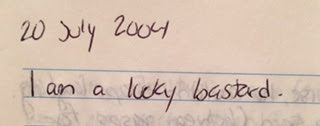 20 July 2004
I am a lucky bastard.